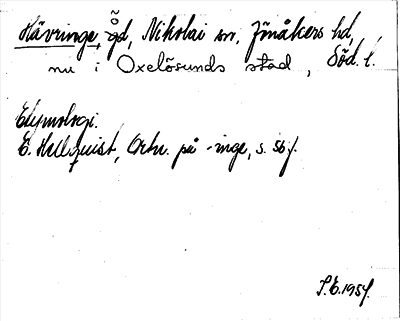 Hävringe, gd, Nikolai sn, Jönåkers hd,
nu i Oxelösunds stad, Söd. l.
Etymologi.
E. Hellquist, Ortn. på -inge, s. 56 f.